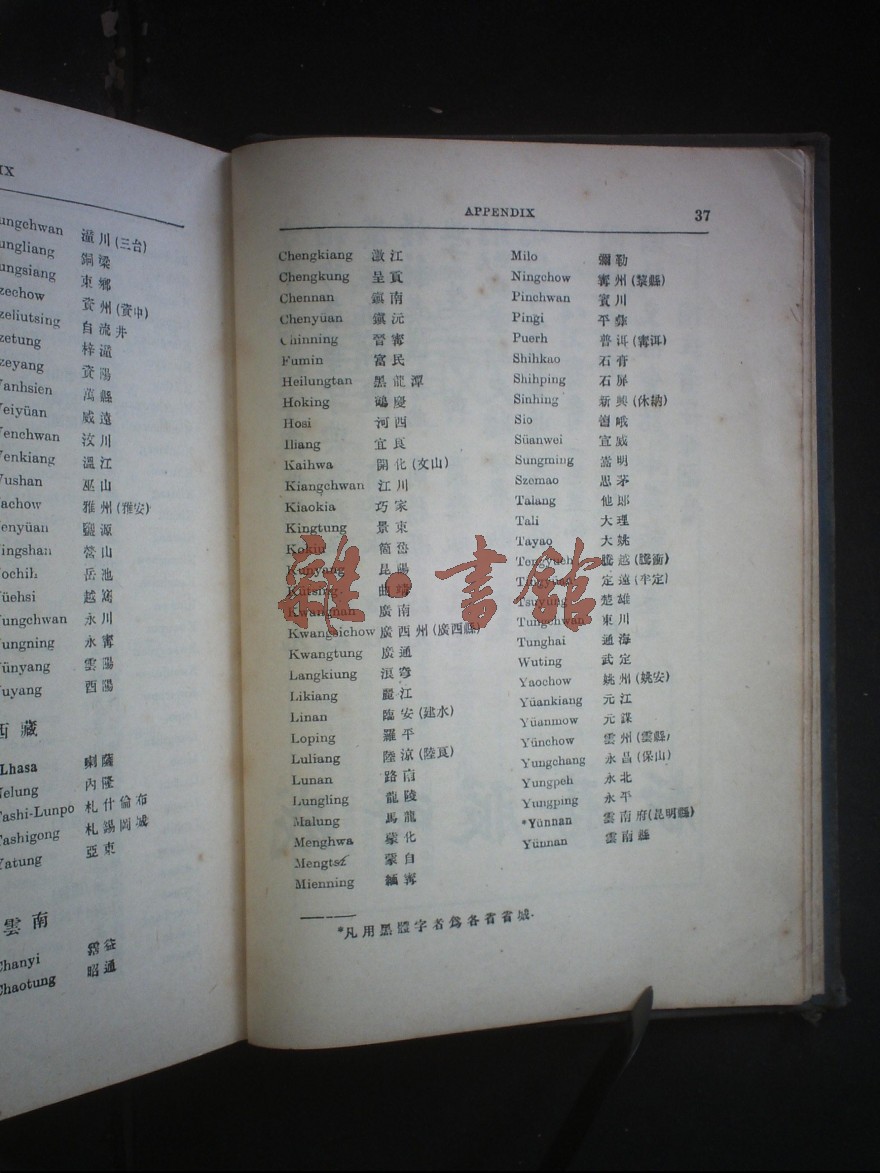 IX
ungchwan 潼川(三台)
ungliang 銅梁
ungsiang 東鄉
zechow 資州(資中)
zeliutsing 自流井
zetung 梓潼
zeyang 資陽
anhsien 萬縣
eiyüan 威遠
enchwan 汶川
enkiang 溫江
ushan 巫山
achow 雅州(雅安)
enyüan 鹽源
ingshan 營山
ochih 岳池
üehsi 越嶲
ungchwan 永川
ungning 永寗
ünyang 雲陽
uyang 酉陽
西藏
Lhasa 喇薩
Nelung 內隆
Tashi-Lunpo 札什倫布
Tashigong 札錫岡城
Yatung 亞東
雲南
Chanyi 霑益
Chaotung 昭通
APPENDIX 37
Chengkiang 澂江
Chengkung 呈貢
Chennan 鎭南
Chenyüan 鎭沅
Chinning 晉寗
Fumin 富民
Heilungtan 黑龍潭
Hoking 鶴慶
Hosi 河西
Iliang 宜良
Kaihwa 開化(文山)
Kiangchwan 江川
Kiaokia 巧家
Kingtung 景東
Kokiu 箇舊
Kunyang 昆陽
Kütsing 曲靖
Kwangnan 廣南
Kwangsichow 廣西州(廣西縣)
Kwangtung 廣通
Langkiung 浪穹
Likiang 麗江
Linan 臨安(建水)
Loping 羅平
Luliang 陸涼(陸良)
Lunan 路南
Lungling 龍陵
Malung 馬龍
Menghwa 蒙化
Mengtsz 蒙自
Mienning 緬寗
Milo 彌勒
Ningchow 寗州(黎縣)
Pinchwan 賓川
Pingi 平彝
Puerh 普洱(寗洱)
Shihkao 石膏
Shihping 石屏
Sinhing 新興(休納)
Sio 嶍峨
Süanwei 宣威
Sungming 嵩明
Szemao 思茅
Talang 他郎
Tali 大理
Tayao 大姚
Tengyueh 騰越(騰衝)
Tingyüan 定遠(牟定)
Tsuyung 楚雄
Tungchwan 東川
Tunghai 通海
Wuting 武定
Yaochow 姚州(姚安)
Yüankiang 元江
Yüanmow 元謀
Yünchow 雲州(雲縣)
Yungchang 永昌(保山)
Yungpeh 永北
Yungping 永平
*Yünnan 雲南府(昆明縣)
Yünnan 雲南縣
*凡用黑體字者爲各省省城.
雜·書館